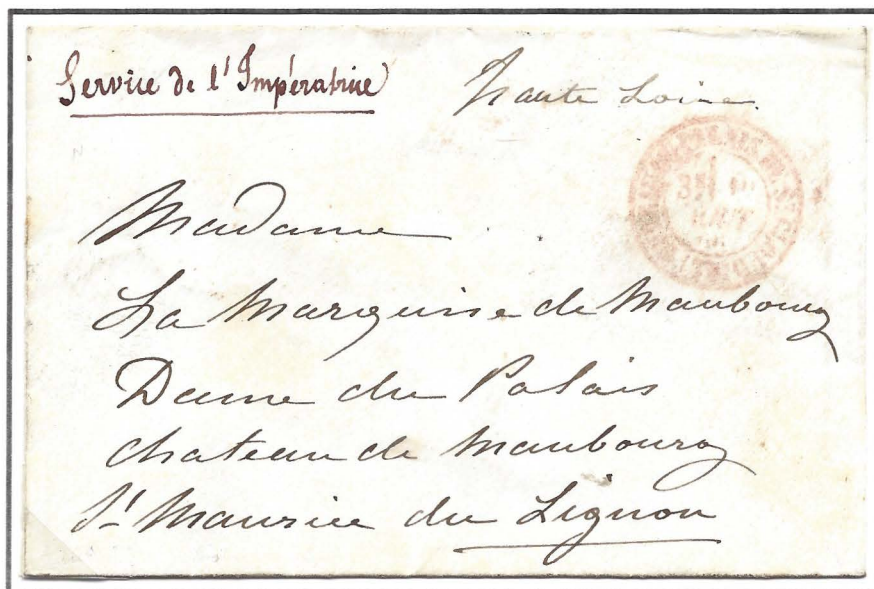 Service de l'Impératrice
haute Loire
Madame
La Marquise de Maubourg
Dame du Palais
chateau de Maubourg
St Maurice du Lignon